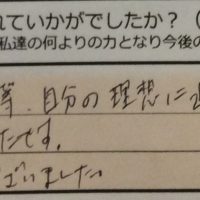 れていかがでしたか？（
私達の何よりの力となり今後の
等、自分の理想に
たです。
ございました。